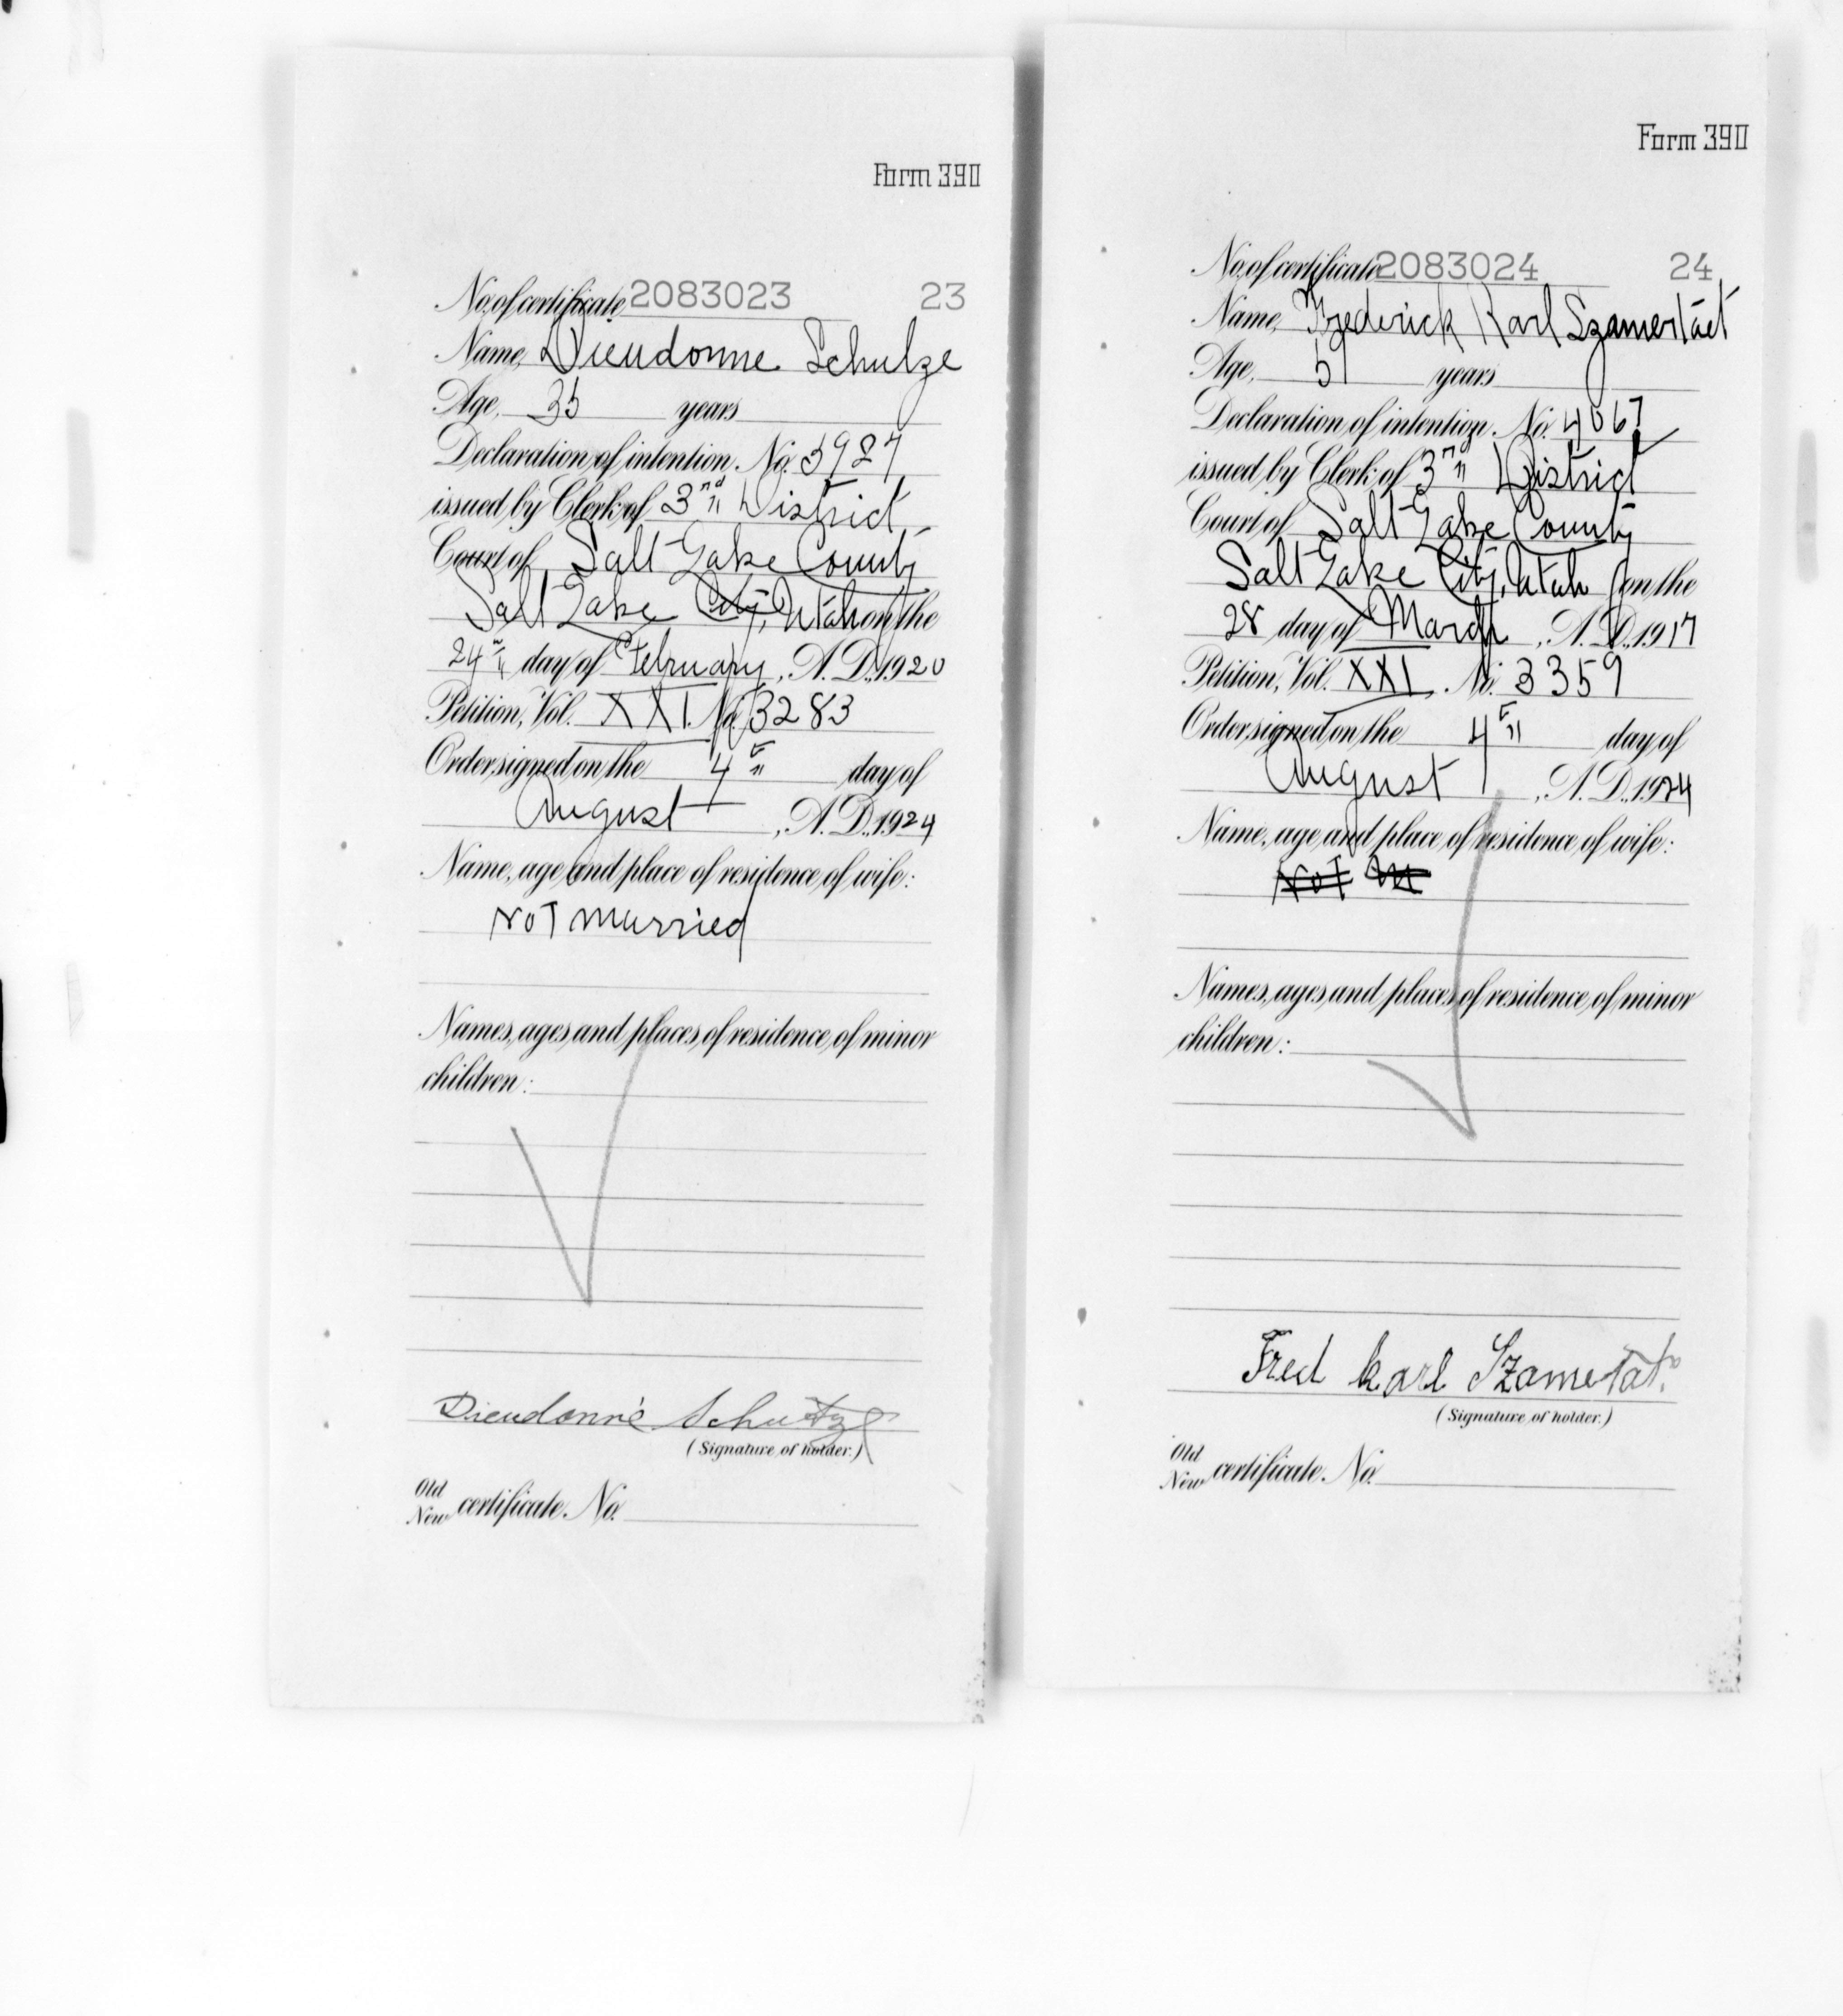 Form 390
No. of certificate 2083023 23
Name, Dieudonne Schulze
Age, 35 years
Declaration of intention, No. 3927
issued by Clerk of 3rd District
Court of Salt Lake County
Salt Lake City, Utah on the
24 day of February, A. D., 1920
Petition, Vol. XXI. No. 3283
Order signed on the 4 day of
August, A. D., 1924
Name, age and place of residence of wife:
Not Married
Names, ages and places of residence of minor
children:
Dieudonné Schultze
(Signature of holder.)
Old
New certificate, No.
Form 390
No. of certificate 2083024 24
Name, Frederick Karl Szamertat
Age, years
Declaration of intention, No. 4067
issued by Clerk of 3rd District
Court of Salt Lake County
Salt Lake City, Utah on the
28 day of March, A. D., 1917
Petition, Vol. XXI, No. 3359
Order signed on the 4 day of
August, A. D., 1924
Name, age and place of residence of wife:
Not M
Names, ages and places of residence of minor
children:
Fred Karl Szametat.
(Signature of holder.)
Old
New certificate, No.